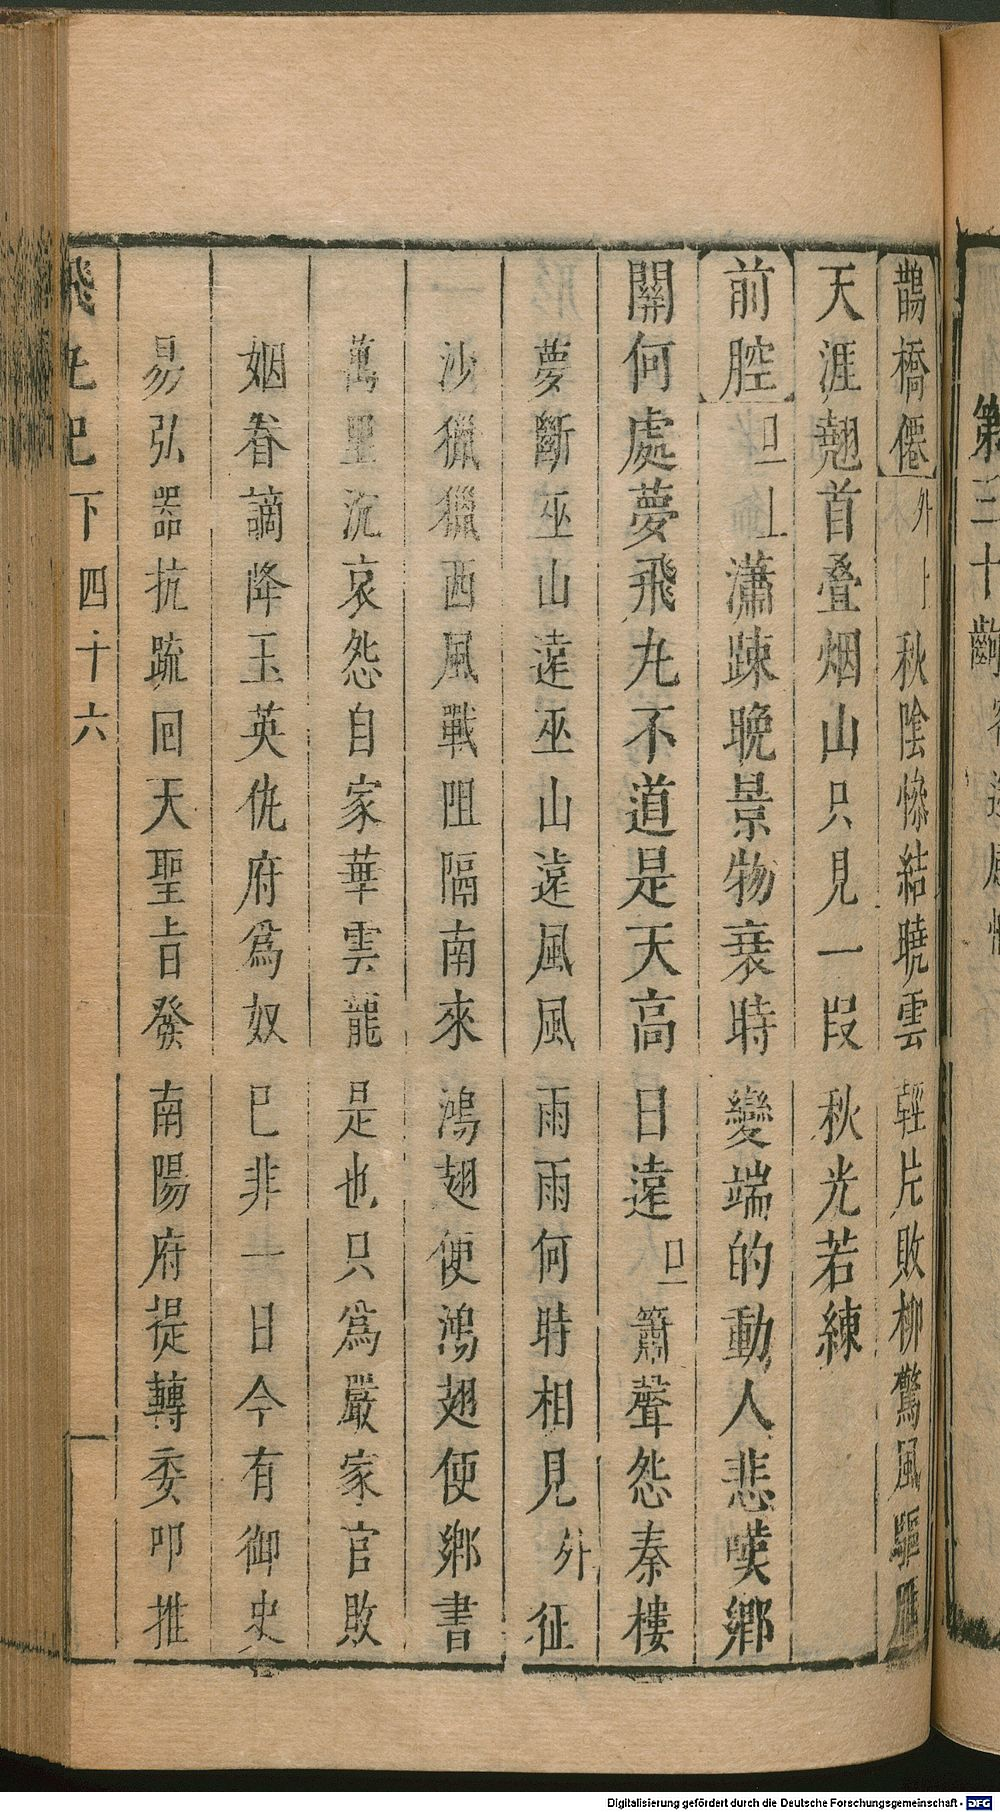 第三十齣
鵲橋僊外上秋陰慘結曉雲輕片敗柳驚風驅雁
天涯翹首叠烟山只見一段秋光若練
前腔旦上瀟踈晚景物衰時變端的動人悲嘆鄉
關何處夢飛九不道是天高日遠旦簫聲怨秦樓
夢斷巫山遠巫山遠風風雨雨何時相見外征
沙獵獵西風戰阻隔南來鴻翅便鴻翅便鄉書
萬里沉哀怨自家華雲龍是也只為嚴家官敗
姻眷謫降玉英仇府為奴已非一日今有御史
易弘器抗疏回天聖旨發南陽府提轉委叩推
飛丸記下四十六
Digitalisierung gefördert durch die Deutsche Forschungsgemeinschaft - DFG